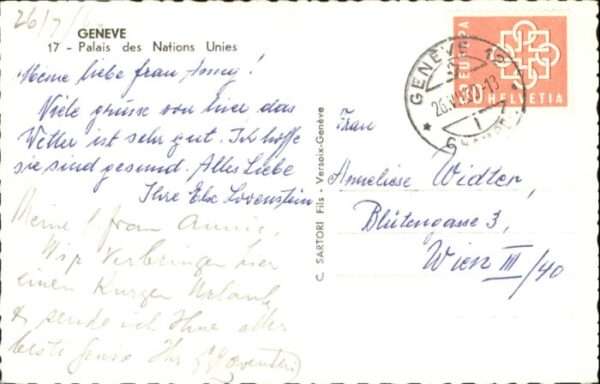 26/7/
GENEVE
17 - Palais des Nations Unies
Meine liebe frau Anny!
Viele grüsse von hier, das
Wetter ist sehr gut. Ich hoffe
sie sind gesund. Alles Liebe
Ihre Else Lovenstein
Meine ! frau Annie,
Wir verbringen hier
einen kurzen Urlaub
& sende ich Ihne alles
beste Ihr
C. SARTORI Fils - Versoix-Genève
GENÈVE
EUROPA
HELVETIA
Frau
Anneliese Widler,
Blütengasse 3,
Wien III/40